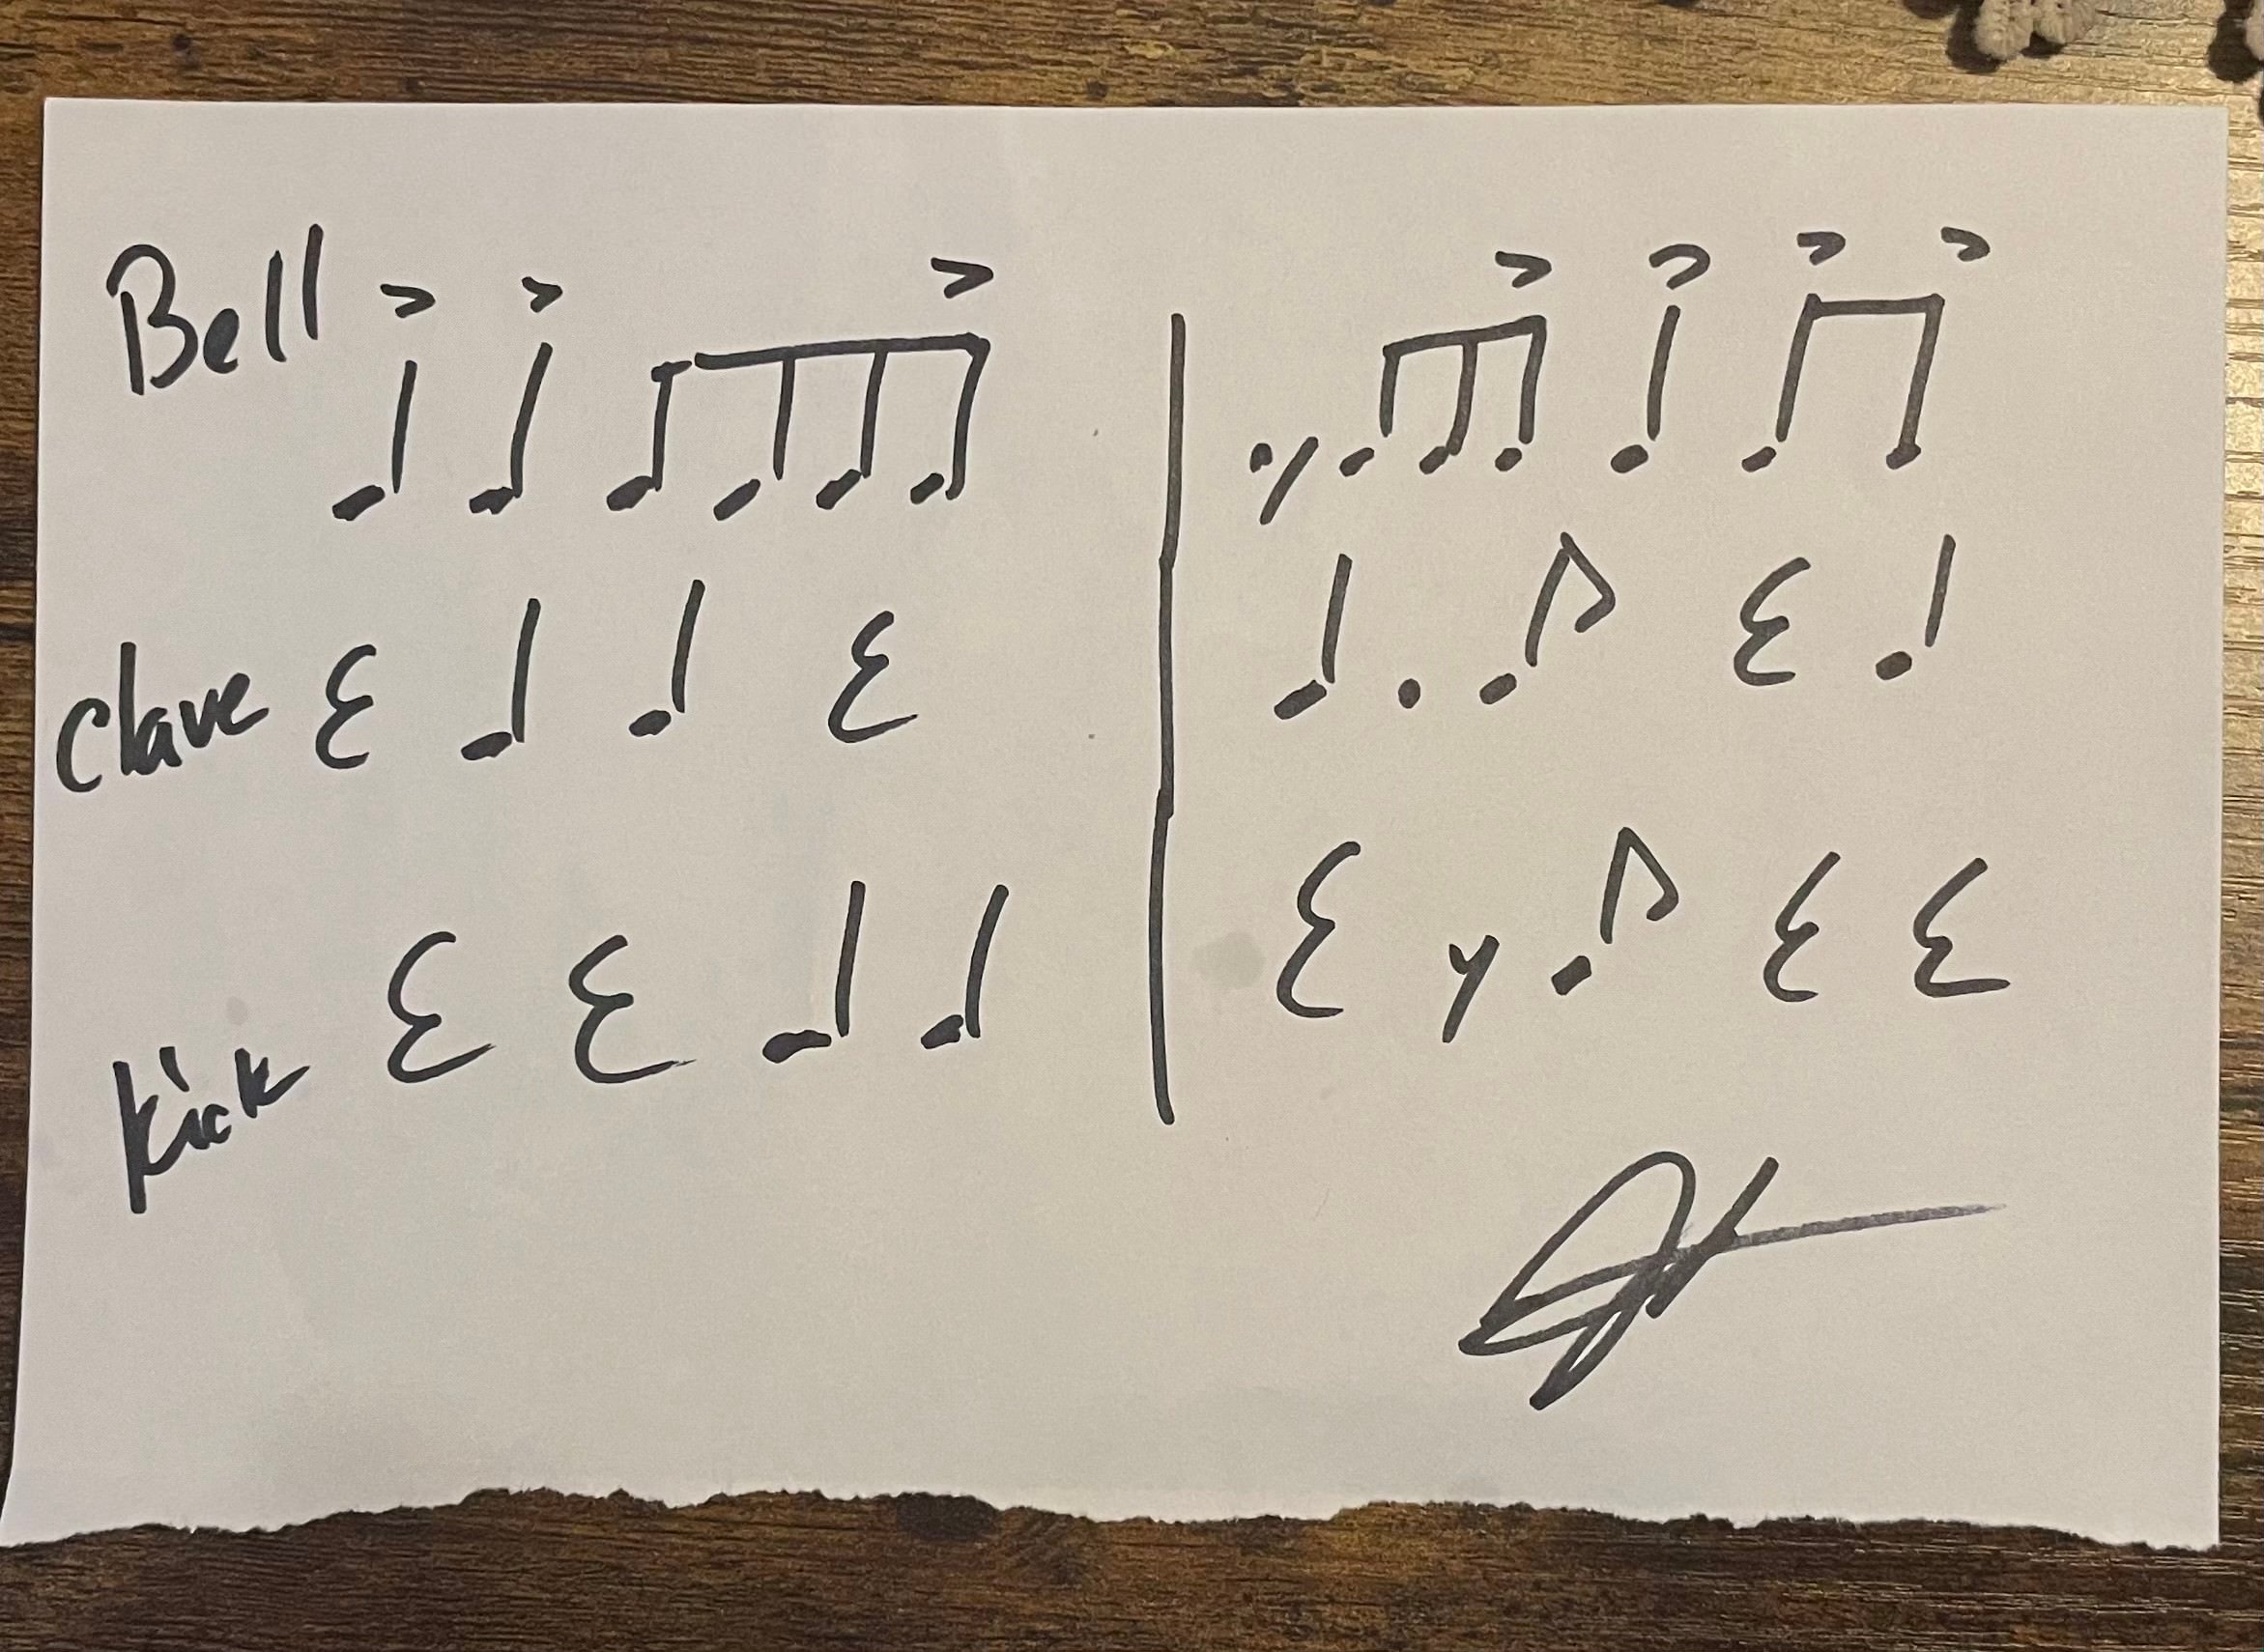 Bell
Clave
Kick